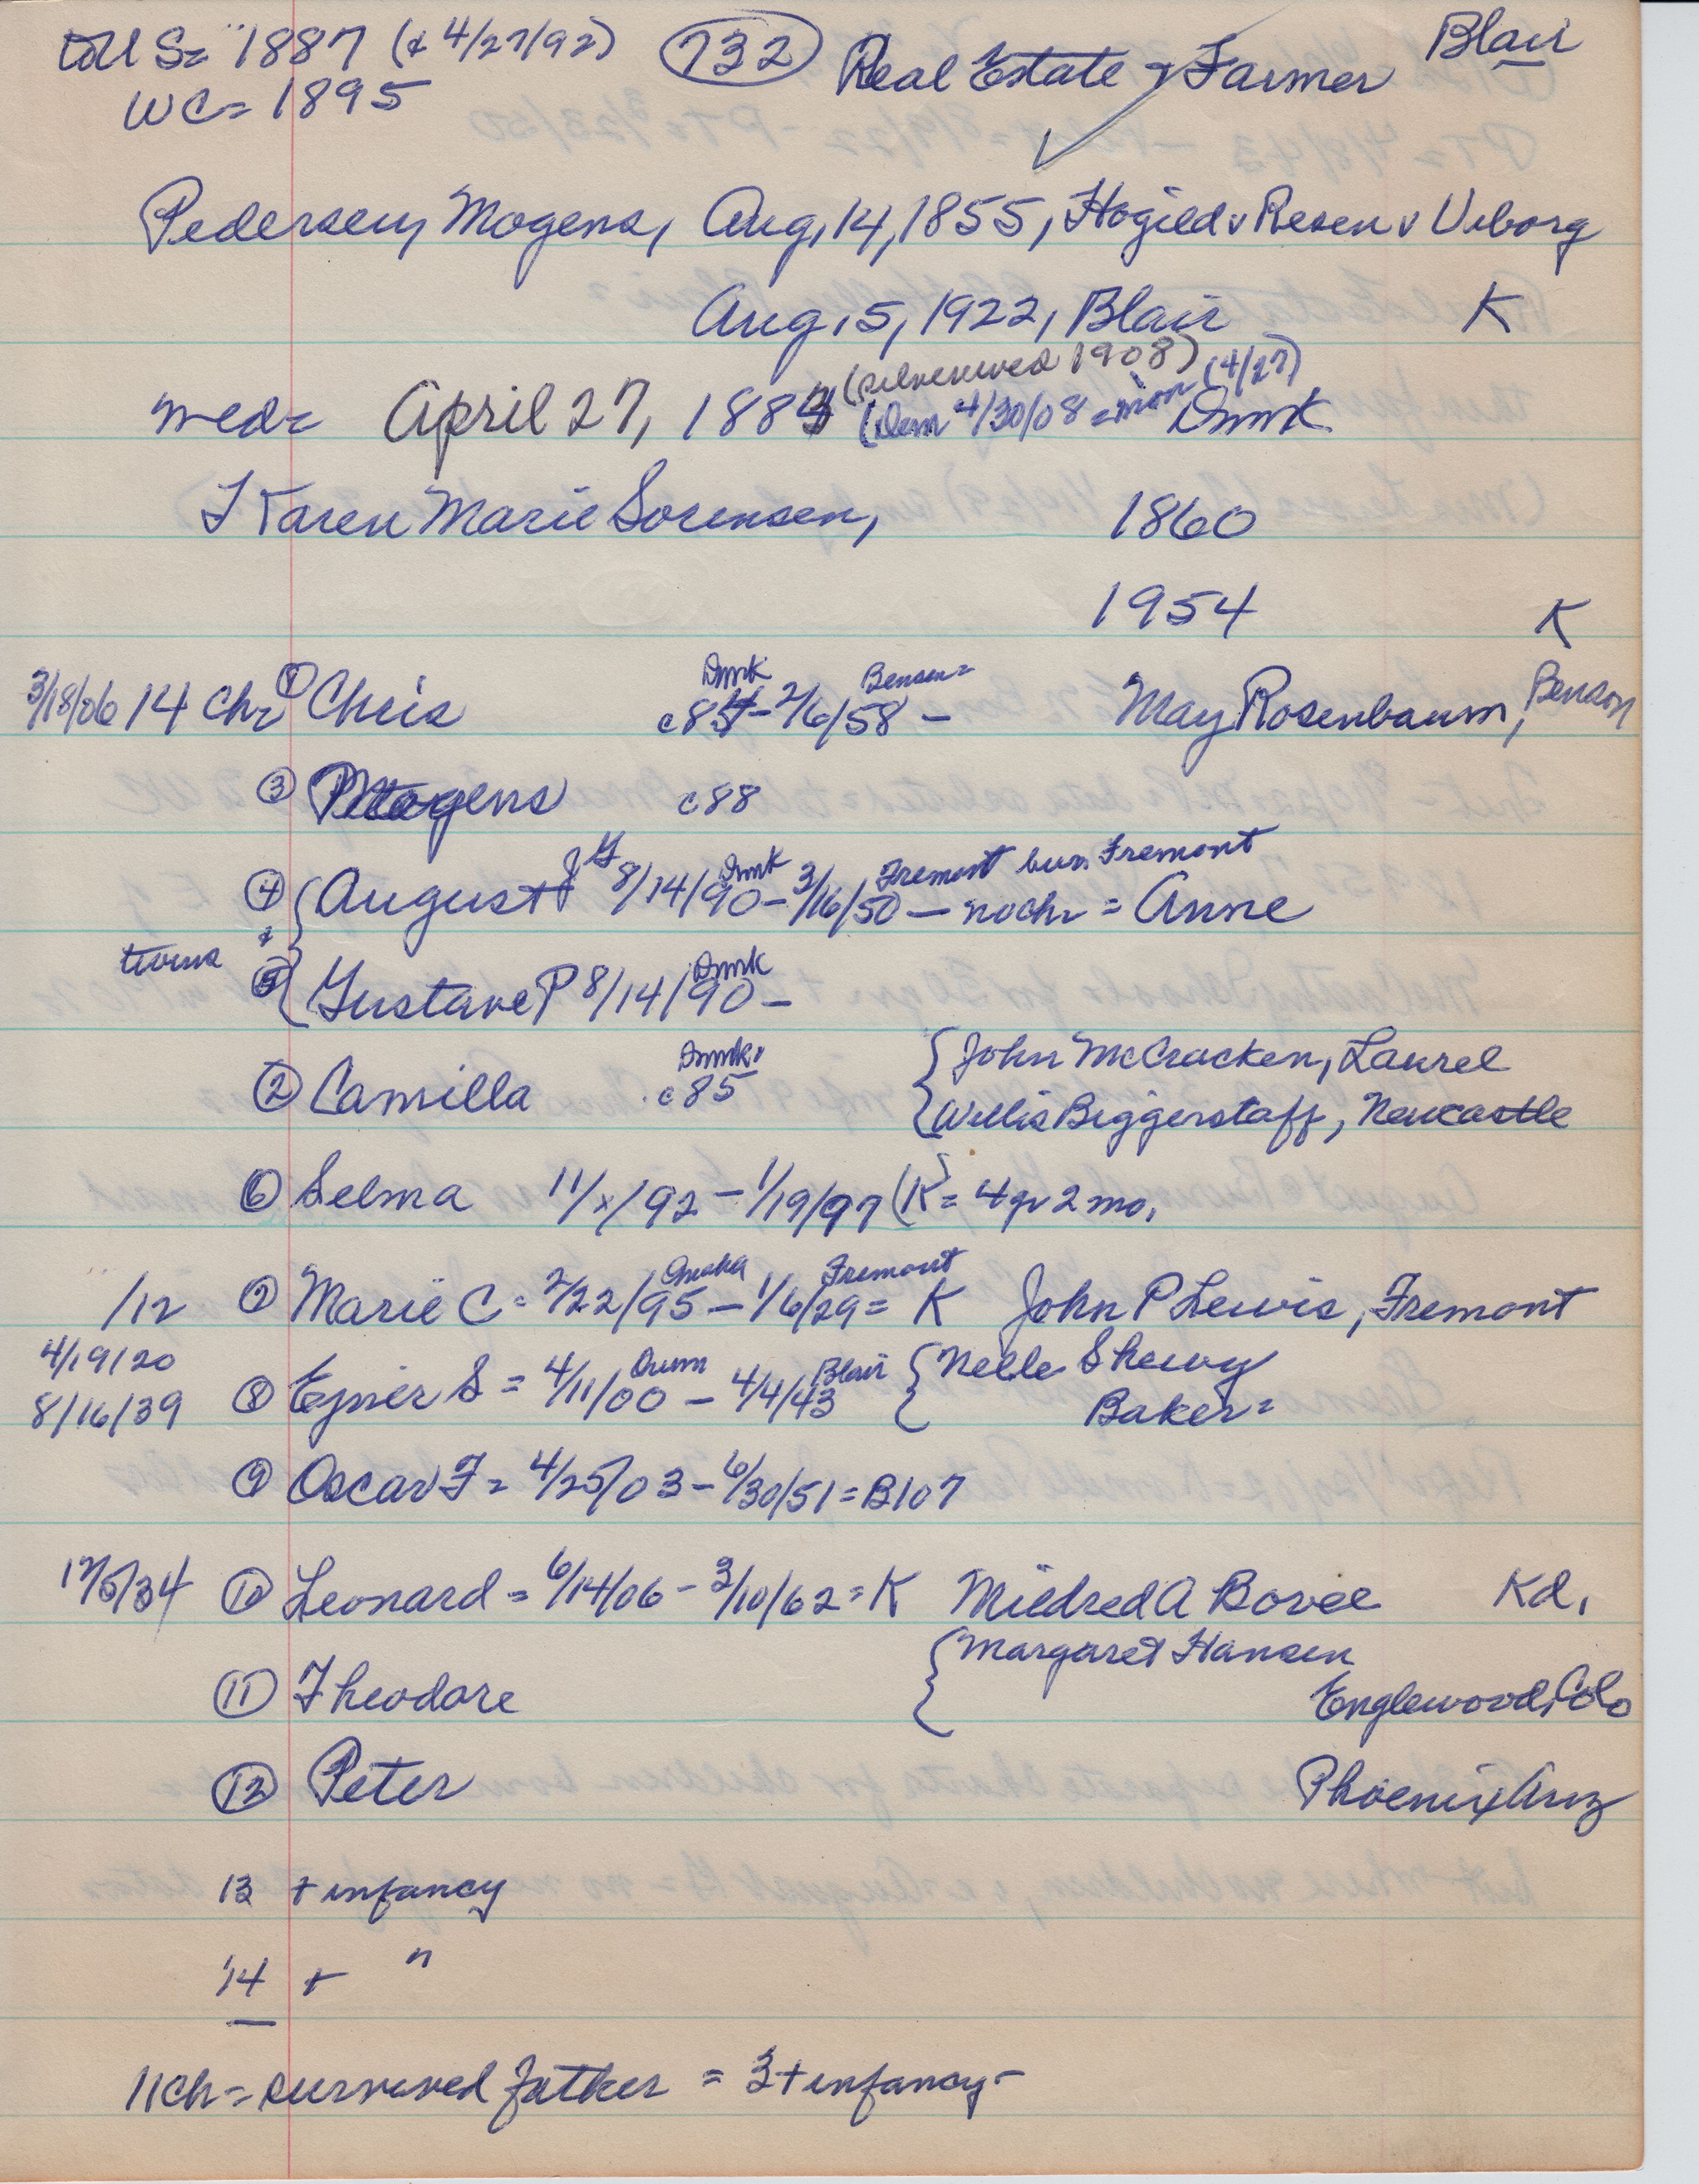 to U S = 1887 (& 4/27/92) 732 Real Estate & Farmer Blair
WC = 1895
Pedersen, Mogens, Aug, 14, 1855, Hogild v Resen v Viborg
Aug, 5, 1922, Blair K
med = April 27, 1883 (silverwed 1908) (Dem 4/30/08 = mon (4/27) Dmk
Karen Marie Sorensen, 1860
1954 K
3/18/06 14 Ch = ① Chris c 84 Dmk - 2/6/58 - Benson = May Rosenbaum, Benson
③ Mogens c 88
④ August G 8/14/90 Dmk - 3/16/50 Fremont bur. Fremont - no ch = Anne
&
twins ⑤ Gustave P 8/14/90 Dmk -
② Camilla c 85 Dmk { John McCracken, Laurel
{ Willis Biggerstaff, Newcastle
⑥ Selma 11/x/92 - 1/19/97 (K) = 4 yr 2 mo.
/12 ⑦ Marie C = 2/22/95 Omaha - 1/6/29 Fremont = K John P Lewis, Fremont
4/19/20
8/16/39 ⑧ Ejner S = 4/11/00 - 4/4/43 Blair { Nelle Shewy
Baker =
⑨ Oscar F = 4/25/03 - 6/30/51 = B107
12/5/34 ⑩ Leonard = 6/14/06 - 3/10/62 = K Mildred A Bovee Kd.
⑪ Theodore { Margaret Hansen
Englewood, Colo
⑫ Peter Phoenix Ariz
13 + infancy
14 + "
11 ch = survived father = 3 + infancy -